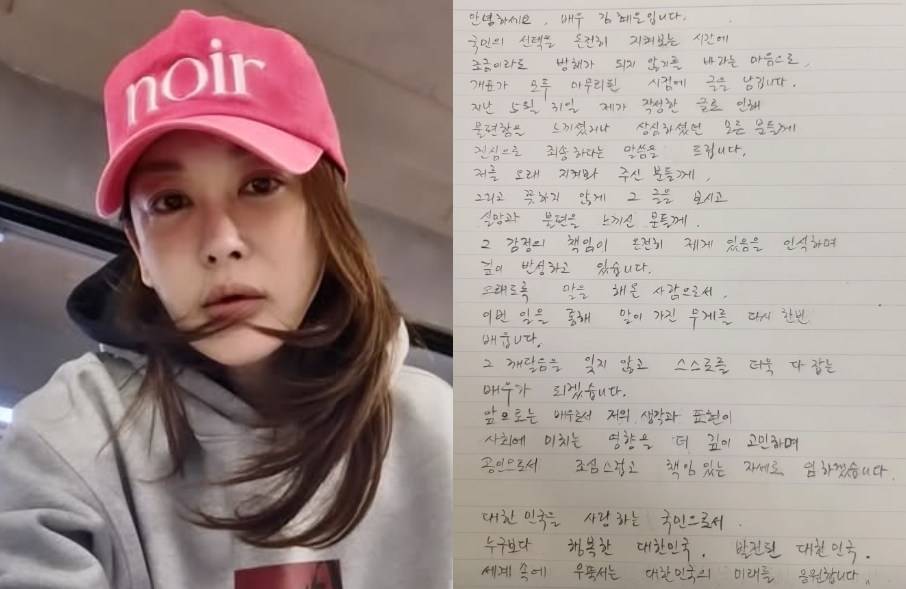 noir
안녕하세요, 배우 김혜은입니다.
국민의 선택을 온전히 지켜보는 시간에
조금이라도 방해가 되지 않기를 바라는 마음으로,
개표가 모두 마무리된 시점에 글을 남깁니다.
지난 5월 31일 제가 작성한 글로 인해
불편함을 느끼셨거나 상심하셨던 모든 분들께
진심으로 죄송하다는 말씀을 드립니다.
저를 오래 지켜봐 주신 분들께,
그리고 뜻하지 않게 그 글을 보시고
실망과 불편을 느끼신 분들께.
그 감정의 책임이 온전히 제게 있음을 인식하며
깊이 반성하고 있습니다.
오래도록 말을 해온 사람으로서,
이번 일을 통해 말이 가진 무게를 다시 한번
배웁니다.
그 깨달음을 잊지 않고 스스로를 더욱 다잡는
배우가 되겠습니다.
앞으로는 배우로서 저의 생각과 표현이
사회에 미치는 영향을 더 깊이 고민하며
공인으로서 조심스럽고 책임있는 자세로 임하겠습니다.
대한민국을 사랑하는 국민으로서.
누구보다 행복한 대한민국. 발전된 대한민국.
세계 속에 우뚝서는 대한민국의 미래를 응원합니다.